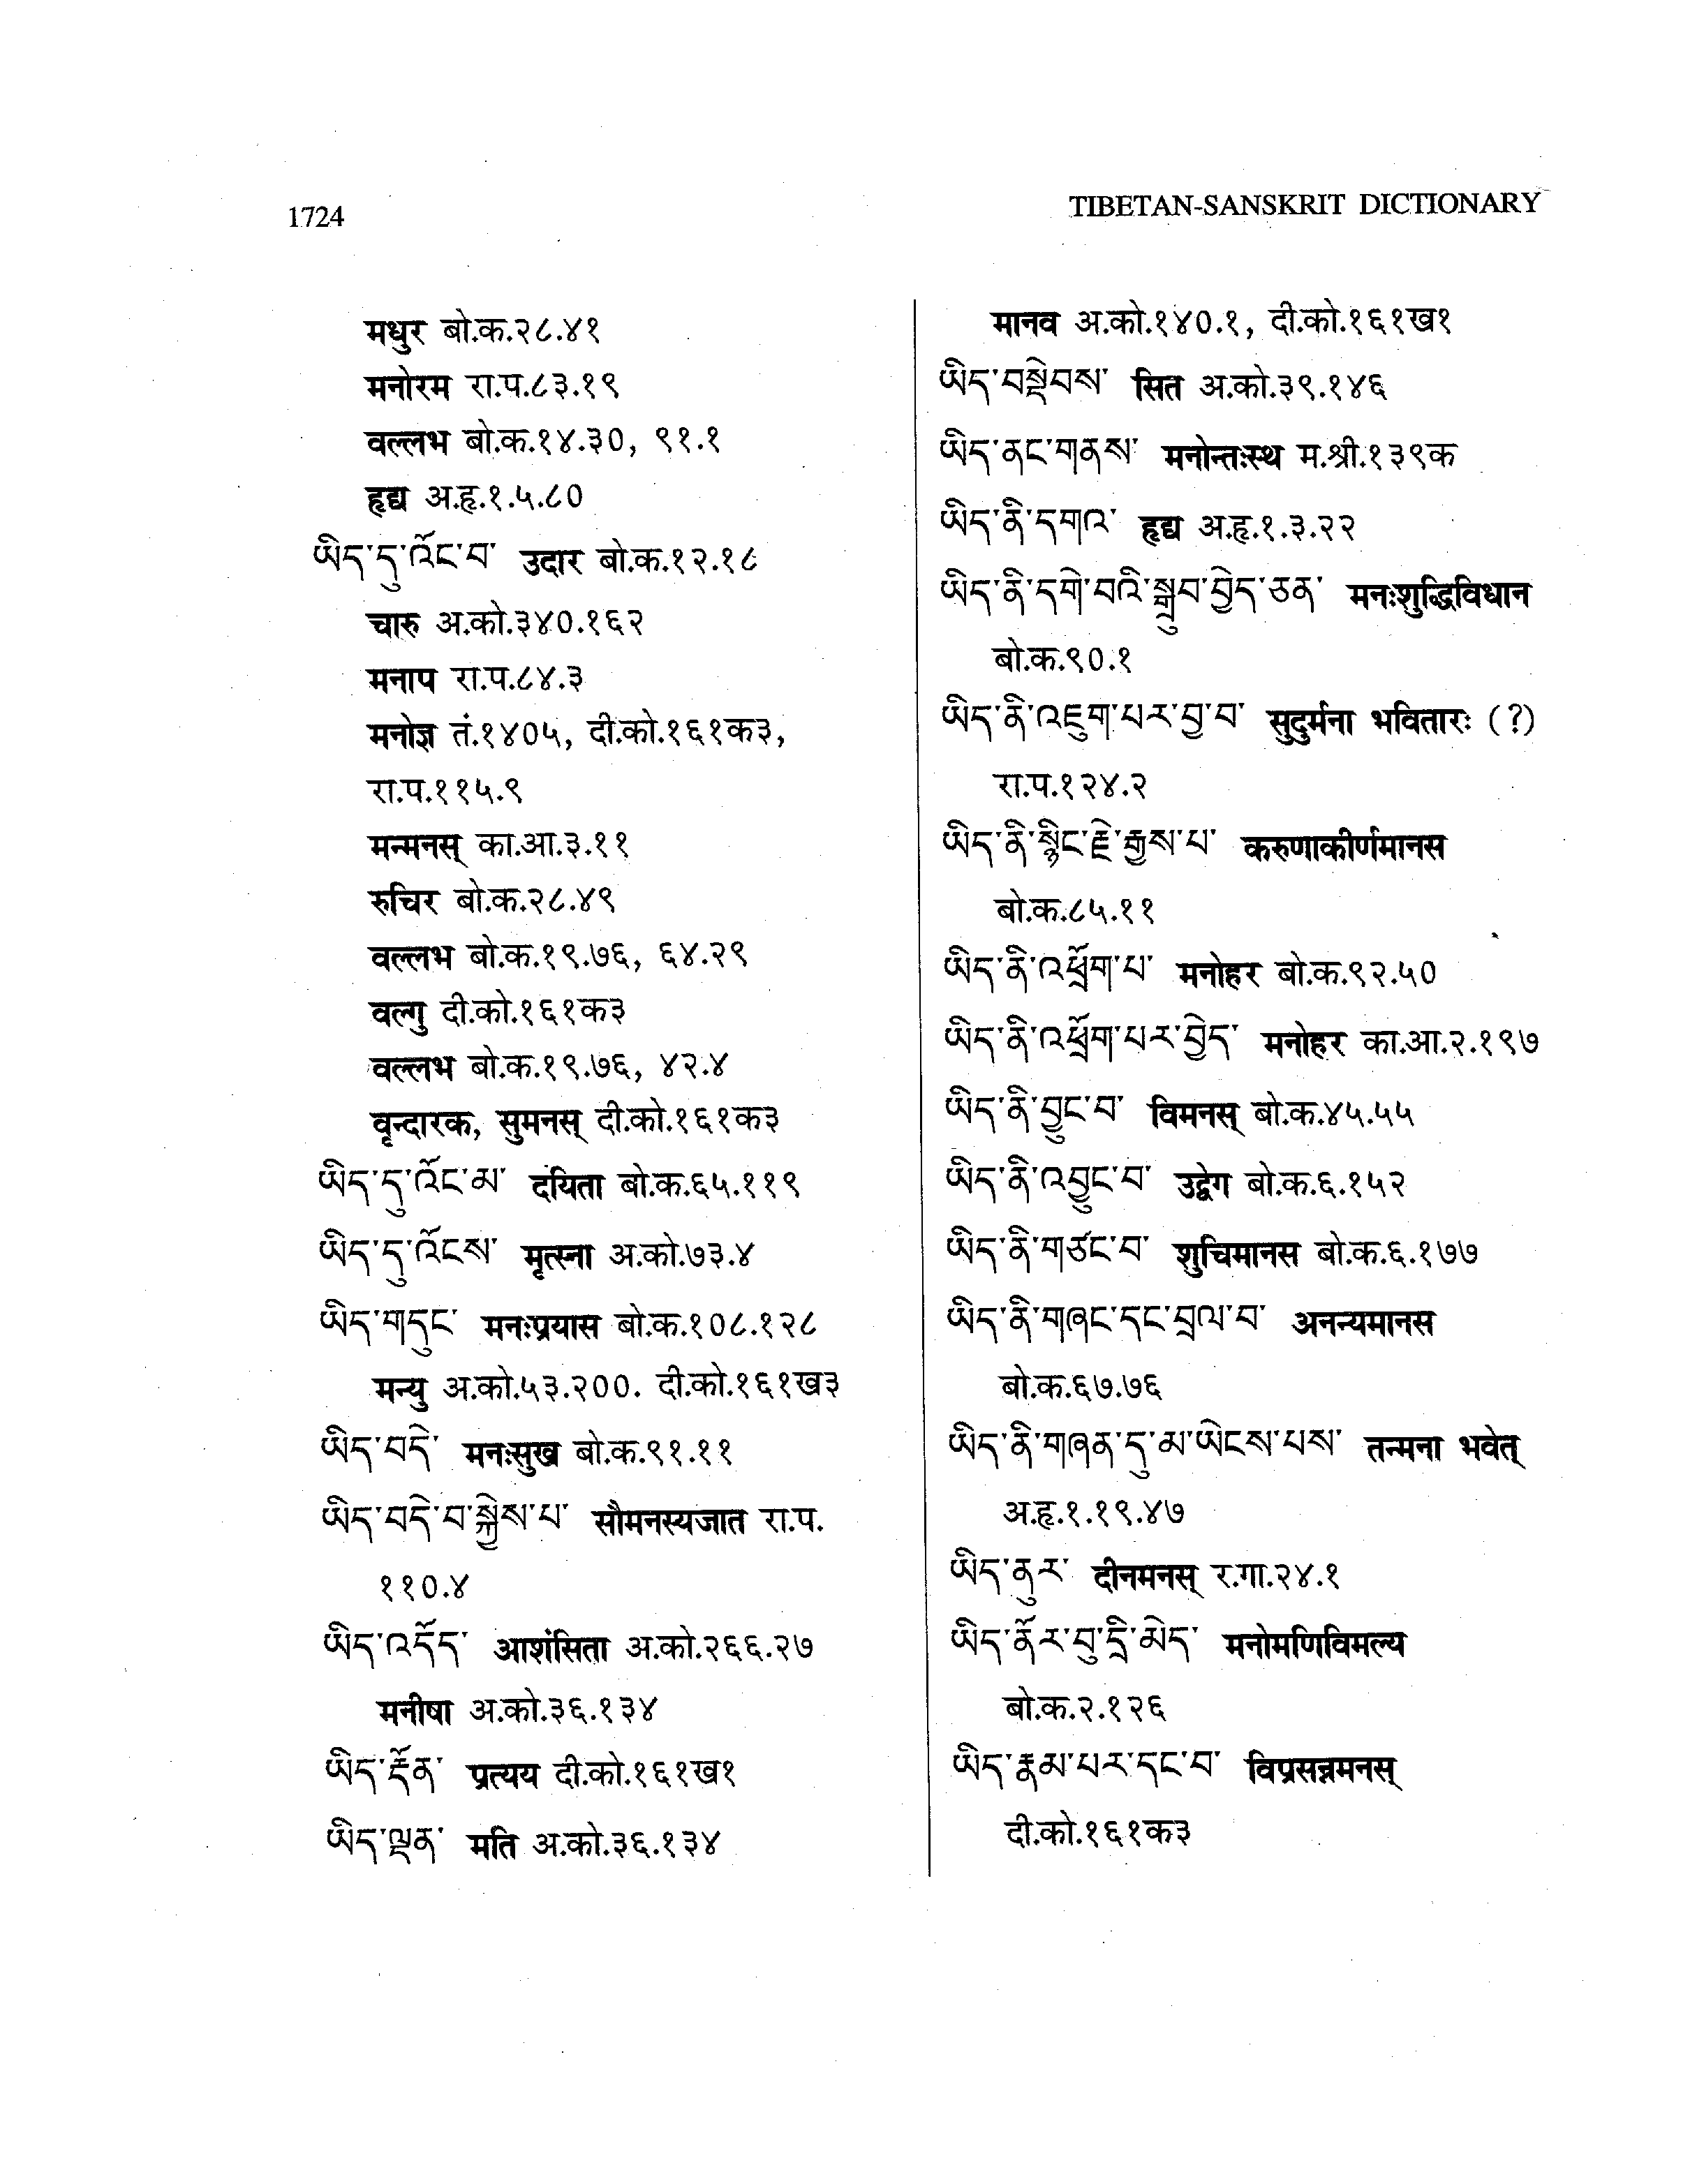 1724
TIBETAN-SANSKRIT DICTIONARY
मधुर बो.क.२८.४१
मनोरम रा.प.८३.१९
वल्लभ बो.क.१४.३०, ९१.१
हृद्य अ.हृ.१.५.८०
ཡིད་དུ་འོང་བ་ उदार बो.क.१२.१८
चारु अ.को.३४०.१६२
मनाप रा.प.८४.३
मनोज्ञ तं.१४०५, दी.को.१६१क३,
रा.प.११५.९
मन्मनस् का.आ.३.११
रुचिर बो.क.२८.४९
वल्लभ बो.क.१९.७६, ६४.२९
वल्गु दी.को.१६१क३
वल्लभ बो.क.१९.७६, ४२.४
वृन्दारक, सुमनस् दी.को.१६१क३
ཡིད་དུ་འོང་མ་ दयिता बो.क.६५.११९
ཡིད་དུ་འོངས་ मृत्स्ना अ.को.७३.४
ཡིད་གདུང་ मनःप्रयास बो.क.१०८.१२८
मन्यु अ.को.५३.२००. दी.को.१६१ख३
ཡིད་བདེ་ मनःसुख बो.क.९१.११
ཡིད་བདེ་བ་སྐྱེས་པ་ सौमनस्यजात रा.प.
११०.४
ཡིད་འདོད་ आशंसिता अ.को.२६६.२७
मनीषा अ.को.३६.१३४
ཡིད་རྡོན་ प्रत्यय दी.को.१६१ख१
ཡིད་ལྡན་ मति अ.को.३६.१३४
मानव अ.को.१४०.१, दी.को.१६१ख१
ཡིད་བསྡེབས་ सित अ.को.३९.१४६
ཡིད་ནང་གནས་ मनोन्तःस्थ म.श्री.१३९क
ཡིད་ནི་དགའ་ हृद्य अ.हृ.१.३.२२
ཡིད་ནི་དགེ་བའི་སྒྲུབ་བྱེད་ཅན་ मनःशुद्धिविधान
बो.क.९०.१
ཡིད་ནི་འཇུག་པར་བྱ་བ་ सुदुर्मना भवितारः (?)
रा.प.१२४.२
ཡིད་ནི་སྙིང་རྗེ་རྒྱས་པ་ करुणाकीर्णमानस
बो.क.८५.११
ཡིད་ནི་འཕྲོག་པ་ मनोहर बो.क.९२.५०
ཡིད་ནི་འཕྲོག་པར་བྱེད་ मनोहर का.आ.२.१९७
ཡིད་ནི་བྱུང་བ་ विमनस् बो.क.४५.५५
ཡིད་ནི་འབྱུང་བ་ उद्वेग बो.क.६.१५२
ཡིད་ནི་གཙང་བ་ शुचिमानस बो.क.६.१७७
ཡིད་ནི་གཞང་དང་བྲལ་བ་ अनन्यमानस
बो.क.६७.७६
ཡིད་ནི་གཞན་དུ་མ་ཡེངས་པས་ तन्मना भवेत्
अ.हृ.१.१९.४७
ཡིད་ནུར་ दीनमनस् र.गा.२४.१
ཡིད་ནོར་བུ་དྲི་མེད་ मनोमणिविमल्य
बो.क.२.१२६
ཡིད་རྣམ་པར་དང་བ་ विप्रसन्नमनस्
दी.को.१६१क३